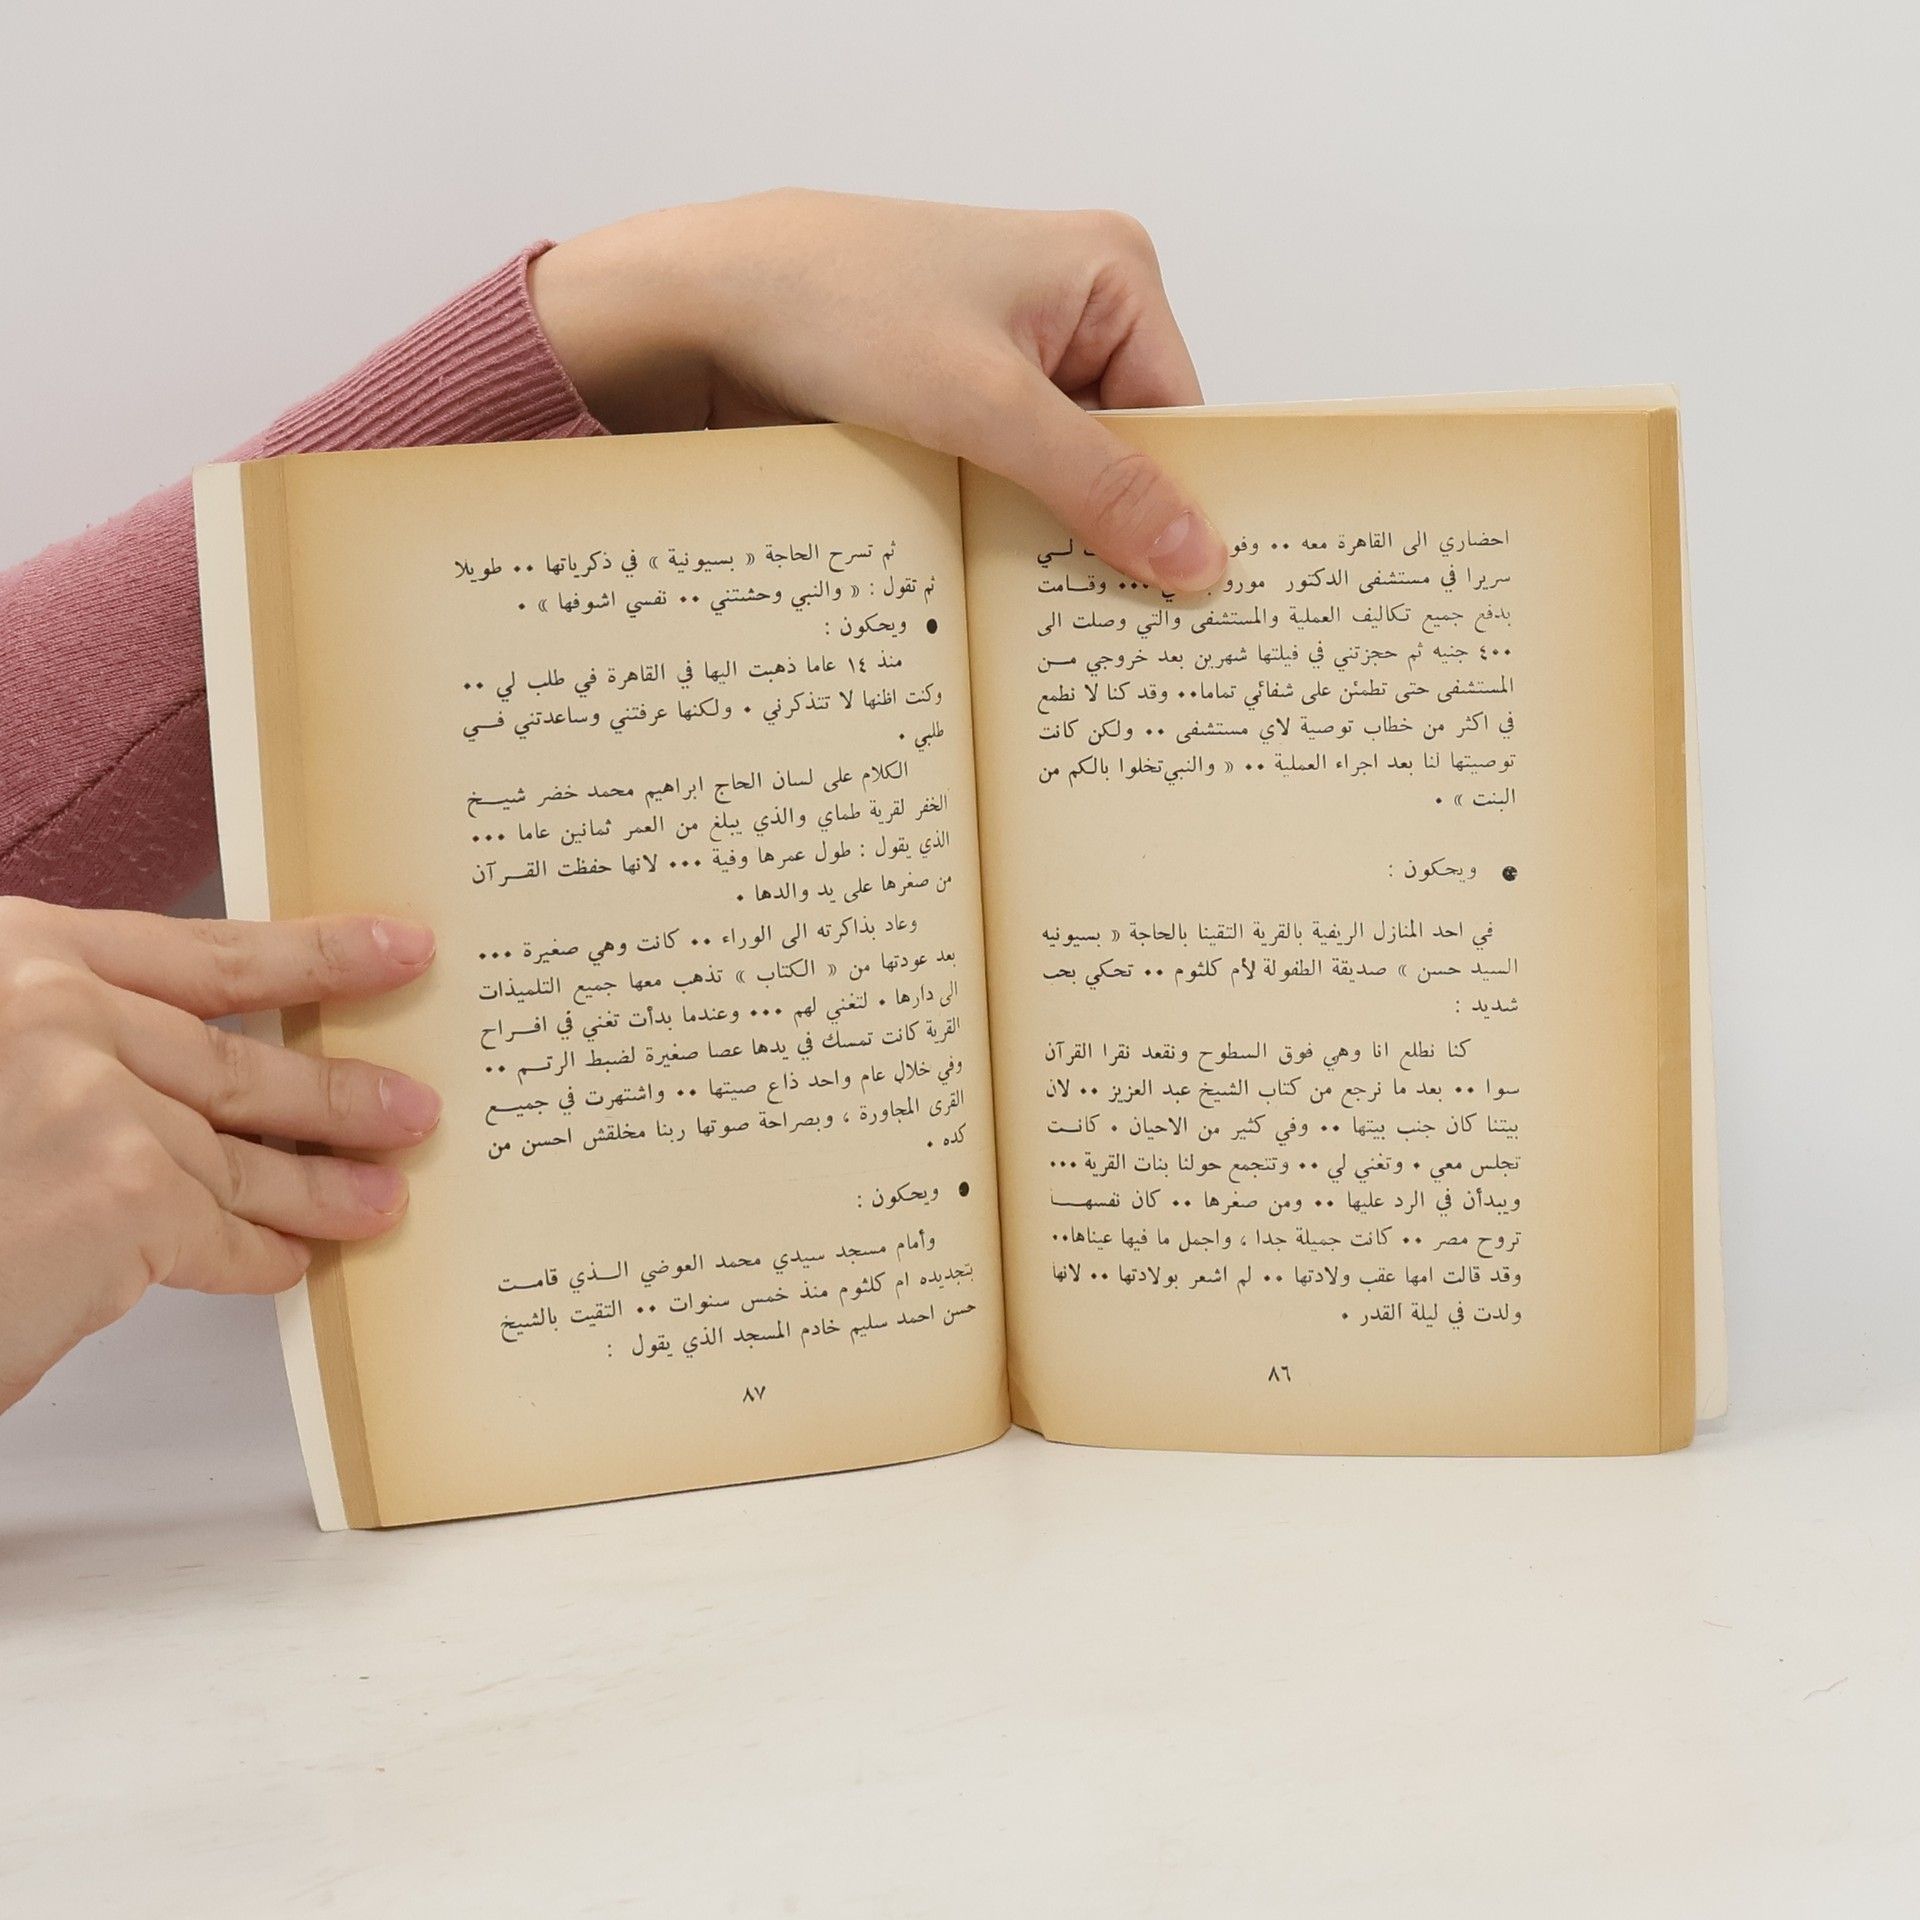 احضاري الى القاهرة معه ٠٠ لـــي
سريرا في مستشفى الدكتور مورو ٠٠٠ وقـــامت
بدفع جميع تكاليف العملية والمستشفى والتي وصلت الى
٤٠٠ جنيه ثم حجزتني في فيلتها شهرين بعد خروجي مـــن
المستشفى حتى تطمئن على شفائي تماما٠٠ وقد كنا لا نطمع
في اكثر من خطاب توصية لاي مستشفى ٠٠ ولكن كانت
توصيتها لنا بعد اجراء العملية ٠٠ « والنبي تخلوا بالكم من
البنت » ٠
● ويحكون :
في احد المنازل الريفية بالقرية التقينا بالحاجة « بسيونيه
السيد حسن » صديقة الطفولة لأم كلثوم ٠٠ تحكي بحب
شديد :
كنا نطلع انا وهي فوق السطوح ونقعد نقرا القرآن
سوا ٠٠ بعد ما نرجع من كتاب الشيخ عبد العزيز ٠٠ لان
بيتنا كان جنب بيتها ٠٠ وفي كثير من الاحيان ٠ كانـــت
تجلس معي ٠ وتغني لي ٠٠ وتتجمع حولنا بنات القرية ٠٠٠
ويبدأن في الرد عليها ٠٠ ومن صغرها ٠٠ كان نفسهـــا
تروح مصر ٠٠ كانت جميلة جدا ، واجمل ما فيها عيناها٠٠
وقد قالت امها عقب ولادتها ٠٠ لم اشعر بولادتها ٠٠ لانها
ولدت في ليلة القدر ٠
٨٦
ثم تسرح الحاجة « بسيونية » في ذكرياتها ٠٠ طويلا
ثم تقول : « والنبي وحشتني ٠٠ نفسي اشوفها » ٠
● ويحكون :
منذ ١٤ عاما ذهبت اليها في القاهرة في طلب لي ٠٠
وكنت اظنها لا تتذكرني ٠ ولكنها عرفتني وساعدتني فـــي
طلبي ٠
الكلام على لسان الحاج ابراهيم محمد خضر شيـــخ
الخفر لقرية طماي والذي يبلغ من العمر ثمانين عاما ٠٠٠
الذي يقول : طول عمرها وفية ٠٠٠ لانها حفظت القـــرآن
من صغرها على يد والدها ٠
وعاد بذاكرته الى الوراء ٠٠ كانت وهي صغيرة ٠٠٠
بعد عودتها من « الكتاب » تذهب معها جميع التلميذات
الى دارها ٠ لتغني لهم ٠٠٠ وعندما بدأت تغني في افـــراح
القرية كانت تمسك في يدها عصا صغيرة لضبط الرتـــم ٠٠
وفي خلال عام واحد ذاع صيتها ٠٠ واشتهرت في جميـــع
القرى المجاورة ، وبصراحة صوتها ربنا مخلقش احسن من
كده ٠
● ويحكون :
وأمام مسجد سيدي محمد العوضي الـــذي قامـــت
بتجديده ام كلثوم منذ خمس سنوات ٠٠ التقيت بالشيخ
حسن احمد سليم خادم المسجد الذي يقول :
٨٧